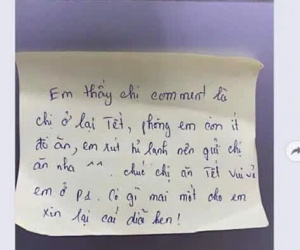 Em thấy chị comment là
chị ở lại Tết, phòng em còn ít
đồ ăn, em rút tủ lạnh nên gửi chị
ăn nha ^^. chúc chị ăn Tết vui vẻ
em ở P4. Có gì mai mốt cho em
xin lại cái dĩa hen!